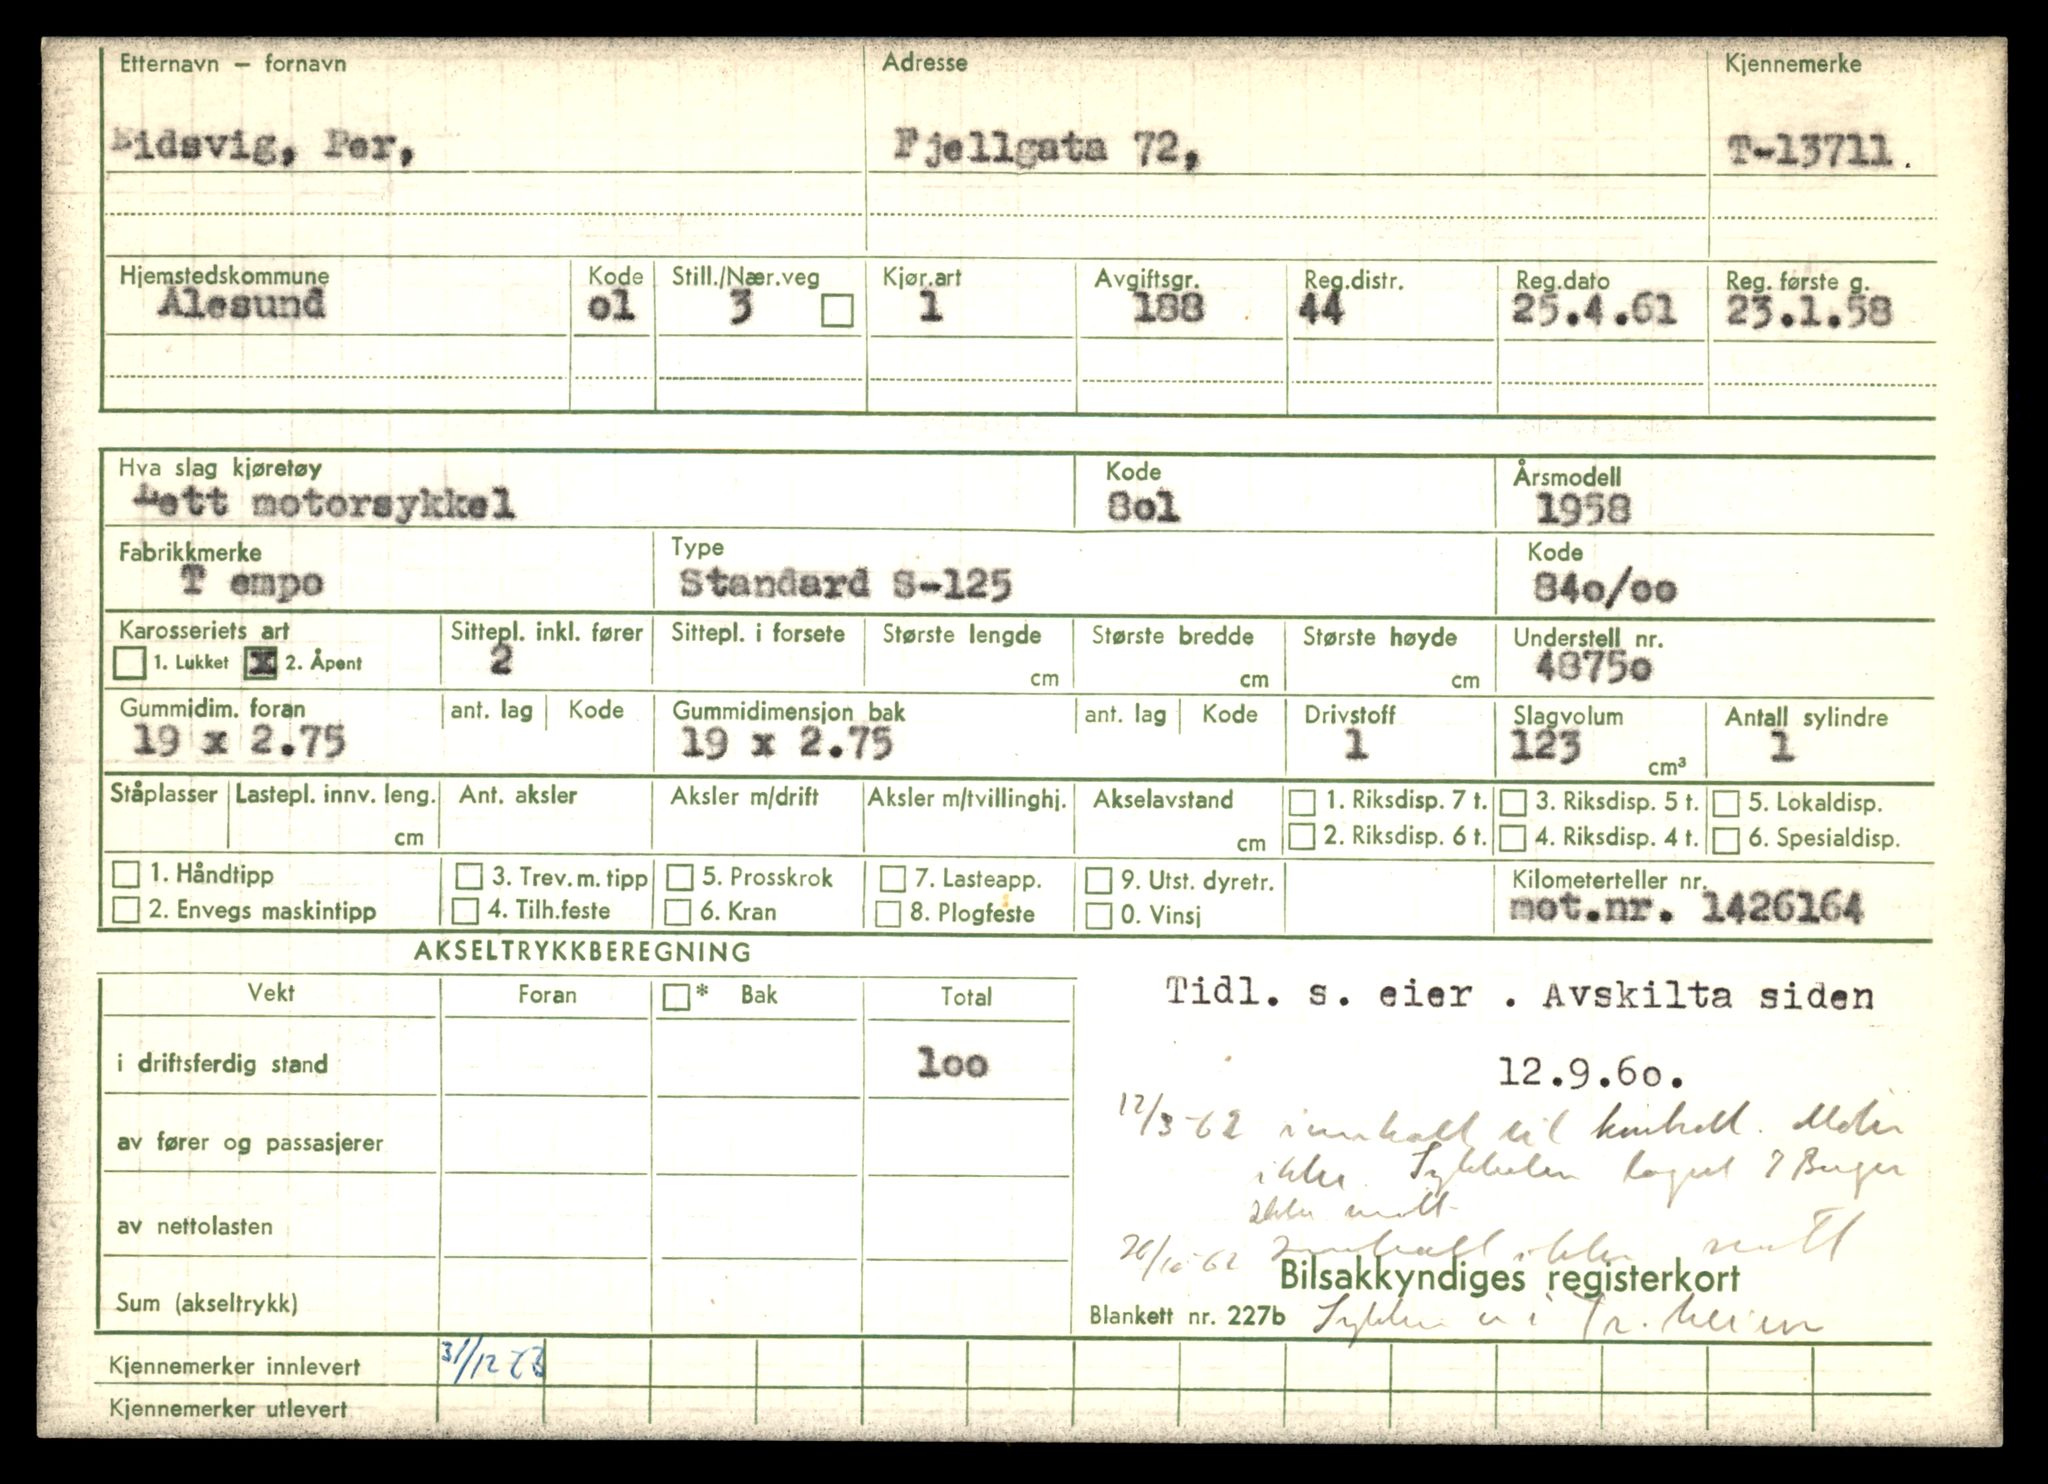 Etternavn – fornavn Adresse Kjennemerke
Eidsvig, Per, Fjellgata 72, T-13711.
Hjemstedskommune Kode Still./Nær.veg Kjør.art Avgiftsgr. Reg.distr. Reg.dato Reg. første g.
Ålesund o1 3 1 188 44 25.4.61 23.1.58
Hva slag kjøretøy Kode Årsmodell
Lett motorsykkel 8o1 1958
Fabrikkmerke Type Kode
T empo Standard S-125 84o/oo
Karosseriets art Sittepl. inkl. fører Sittepl. i forsete Største lengde Største bredde Største høyde Understell nr.
1. Lukket x 2. Åpent 2 cm cm cm 4875o
Gummidim. foran ant. lag Kode Gummidimensjon bak ant. lag Kode Drivstoff Slagvolum Antall sylindre
19 x 2.75 19 x 2.75 1 123 cm³ 1
Ståplasser Lastepl. innv. leng. Ant. aksler Aksler m/drift Aksler m/tvillinghj. Akselavstand 1. Riksdisp. 7 t. 3. Riksdisp. 5 t. 5. Lokaldisp.
cm cm 2. Riksdisp. 6 t. 4. Riksdisp. 4 t. 6. Spesialdisp.
1. Håndtipp 3. Trev. m. tipp 5. Prosskrok 7. Lasteapp. 9. Utst. dyretr. Kilometerteller nr.
2. Envegs maskintipp 4. Tilh.feste 6. Kran 8. Plogfeste 0. Vinsj mot.nr. 1426164
AKSELTRYKKBEREGNING
Vekt Foran * Bak Total
Tidl. s. eier . Avskilta siden
i driftsferdig stand 1oo
12.9.6o.
12/3-62 innkalt til kontroll. Møter
av fører og passasjerer
ikke. Sykkelen lagret
ikke møtt
av nettolasten
26/10-62 Innkalt ikke møtt
Bilsakkyndiges registerkort
Sum (akseltrykk)
Blankett nr. 227b Sykkelen er i
Kjennemerker innlevert 31/12 63
Kjennemerker utlevert